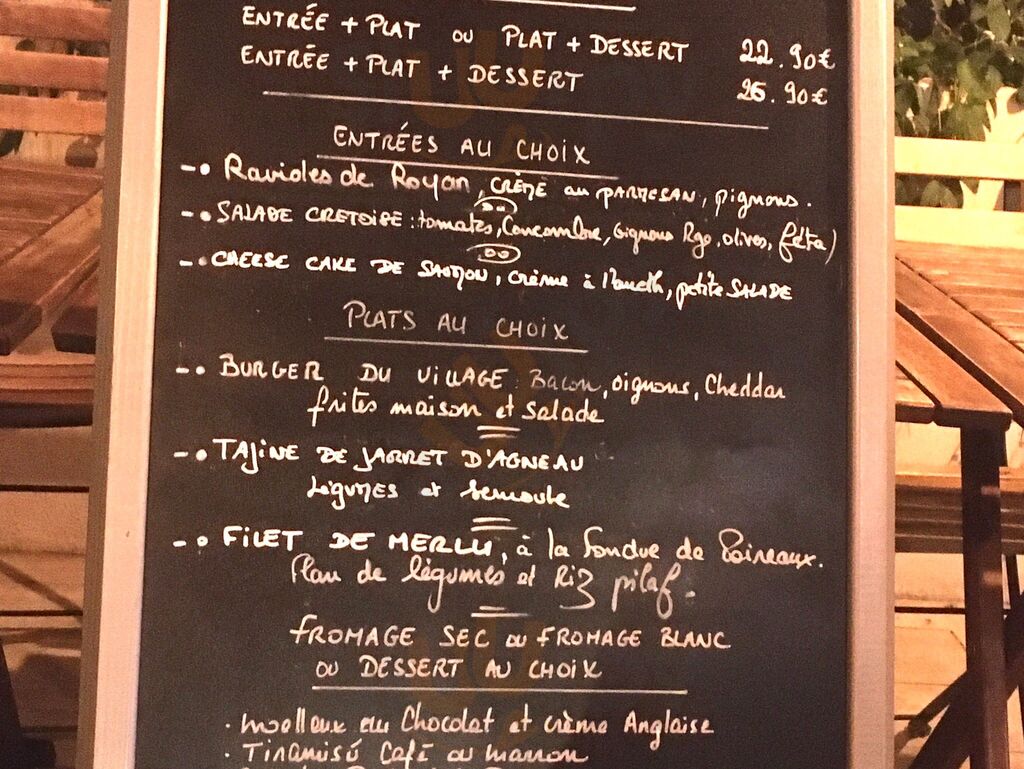 ENTRÉE + PLAT OU PLAT + DESSERT 22.90€
ENTRÉE + PLAT + DESSERT 26.90€
ENTRÉES AU CHOIX
-• Ravioles de Royan, CRÈME au PARMESAN, pignons.
ou
-• SALADE CRETOISE: tomates, Concombre, oignons Rge, olives, feta)
ou
-• CHEESE CAKE DE SAUMON, crème à l'aneth, petite SALADE
PLATS AU CHOIX
-• BURGER DU VILLAGE: Bacon, oignons, Cheddar
frites maison et Salade
-• TAJINE DE JARRET D'AGNEAU
Légumes et semoule
-• FILET DE MERLU, à la fondue de Poireaux.
Flan de légumes et Riz pilaf.
FROMAGE SEC ou FROMAGE BLANC
OU DESSERT AU CHOIX
• Moelleux au Chocolat et crème Anglaise
• Tiramisú Café ou marron